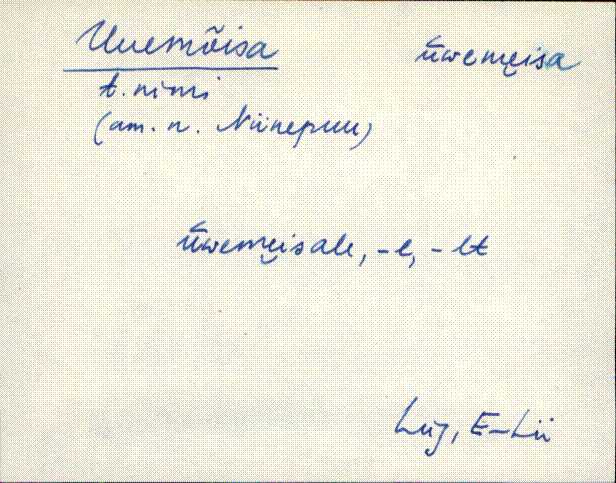 Uuemõisa ūwemęisa
t. nimi
(am. n. Niinepuu)
ūwemęisale, -l, -lt
Lüg, E-Lii